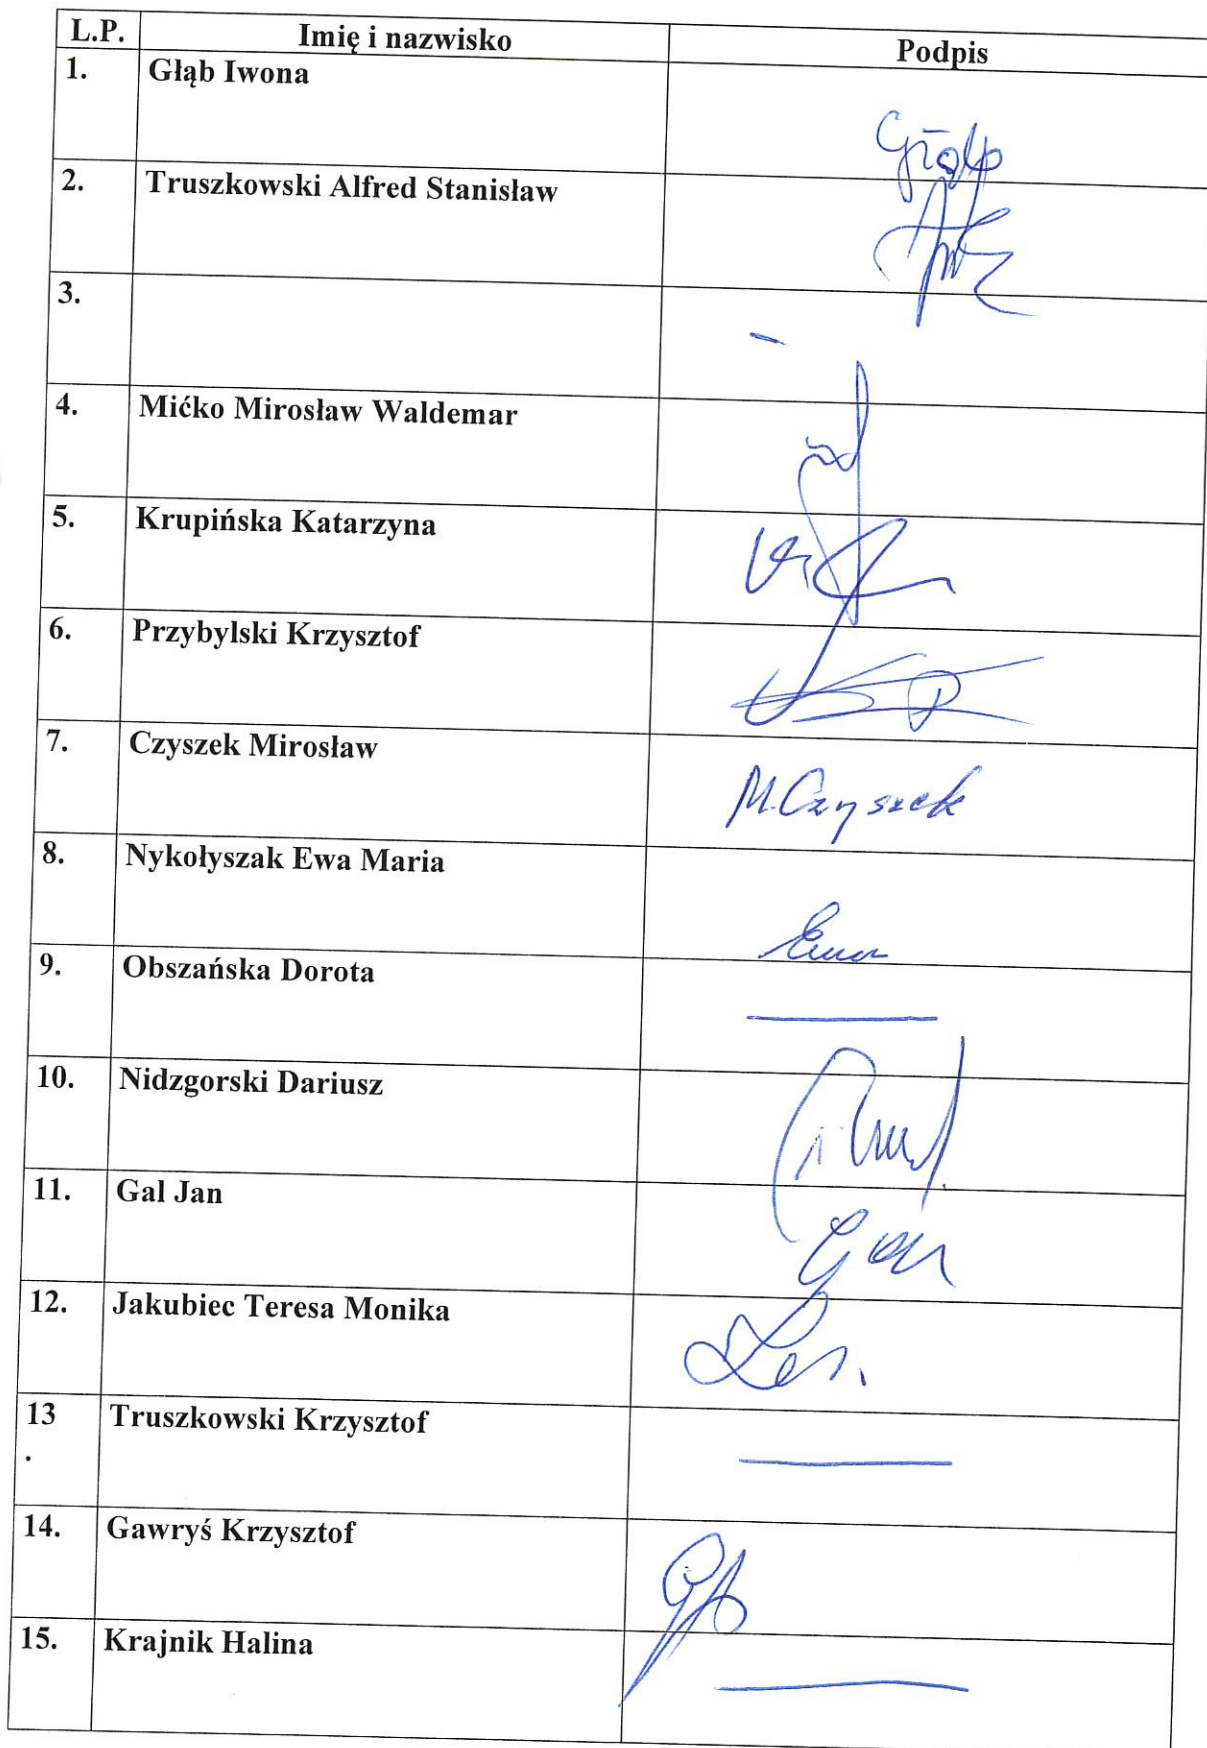 L.P. Imię i nazwisko Podpis
1. Głąb Iwona
Głąb
2. Truszkowski Alfred Stanisław
3.
4. Mićko Mirosław Waldemar
5. Krupińska Katarzyna
6. Przybylski Krzysztof
7. Czyszek Mirosław
M.Czyszek
8. Nykołyszak Ewa Maria
Ewa
9. Obszańska Dorota
10. Nidzgorski Dariusz
11. Gal Jan
12. Jakubiec Teresa Monika
13 Truszkowski Krzysztof
.
14. Gawryś Krzysztof
15. Krajnik Halina